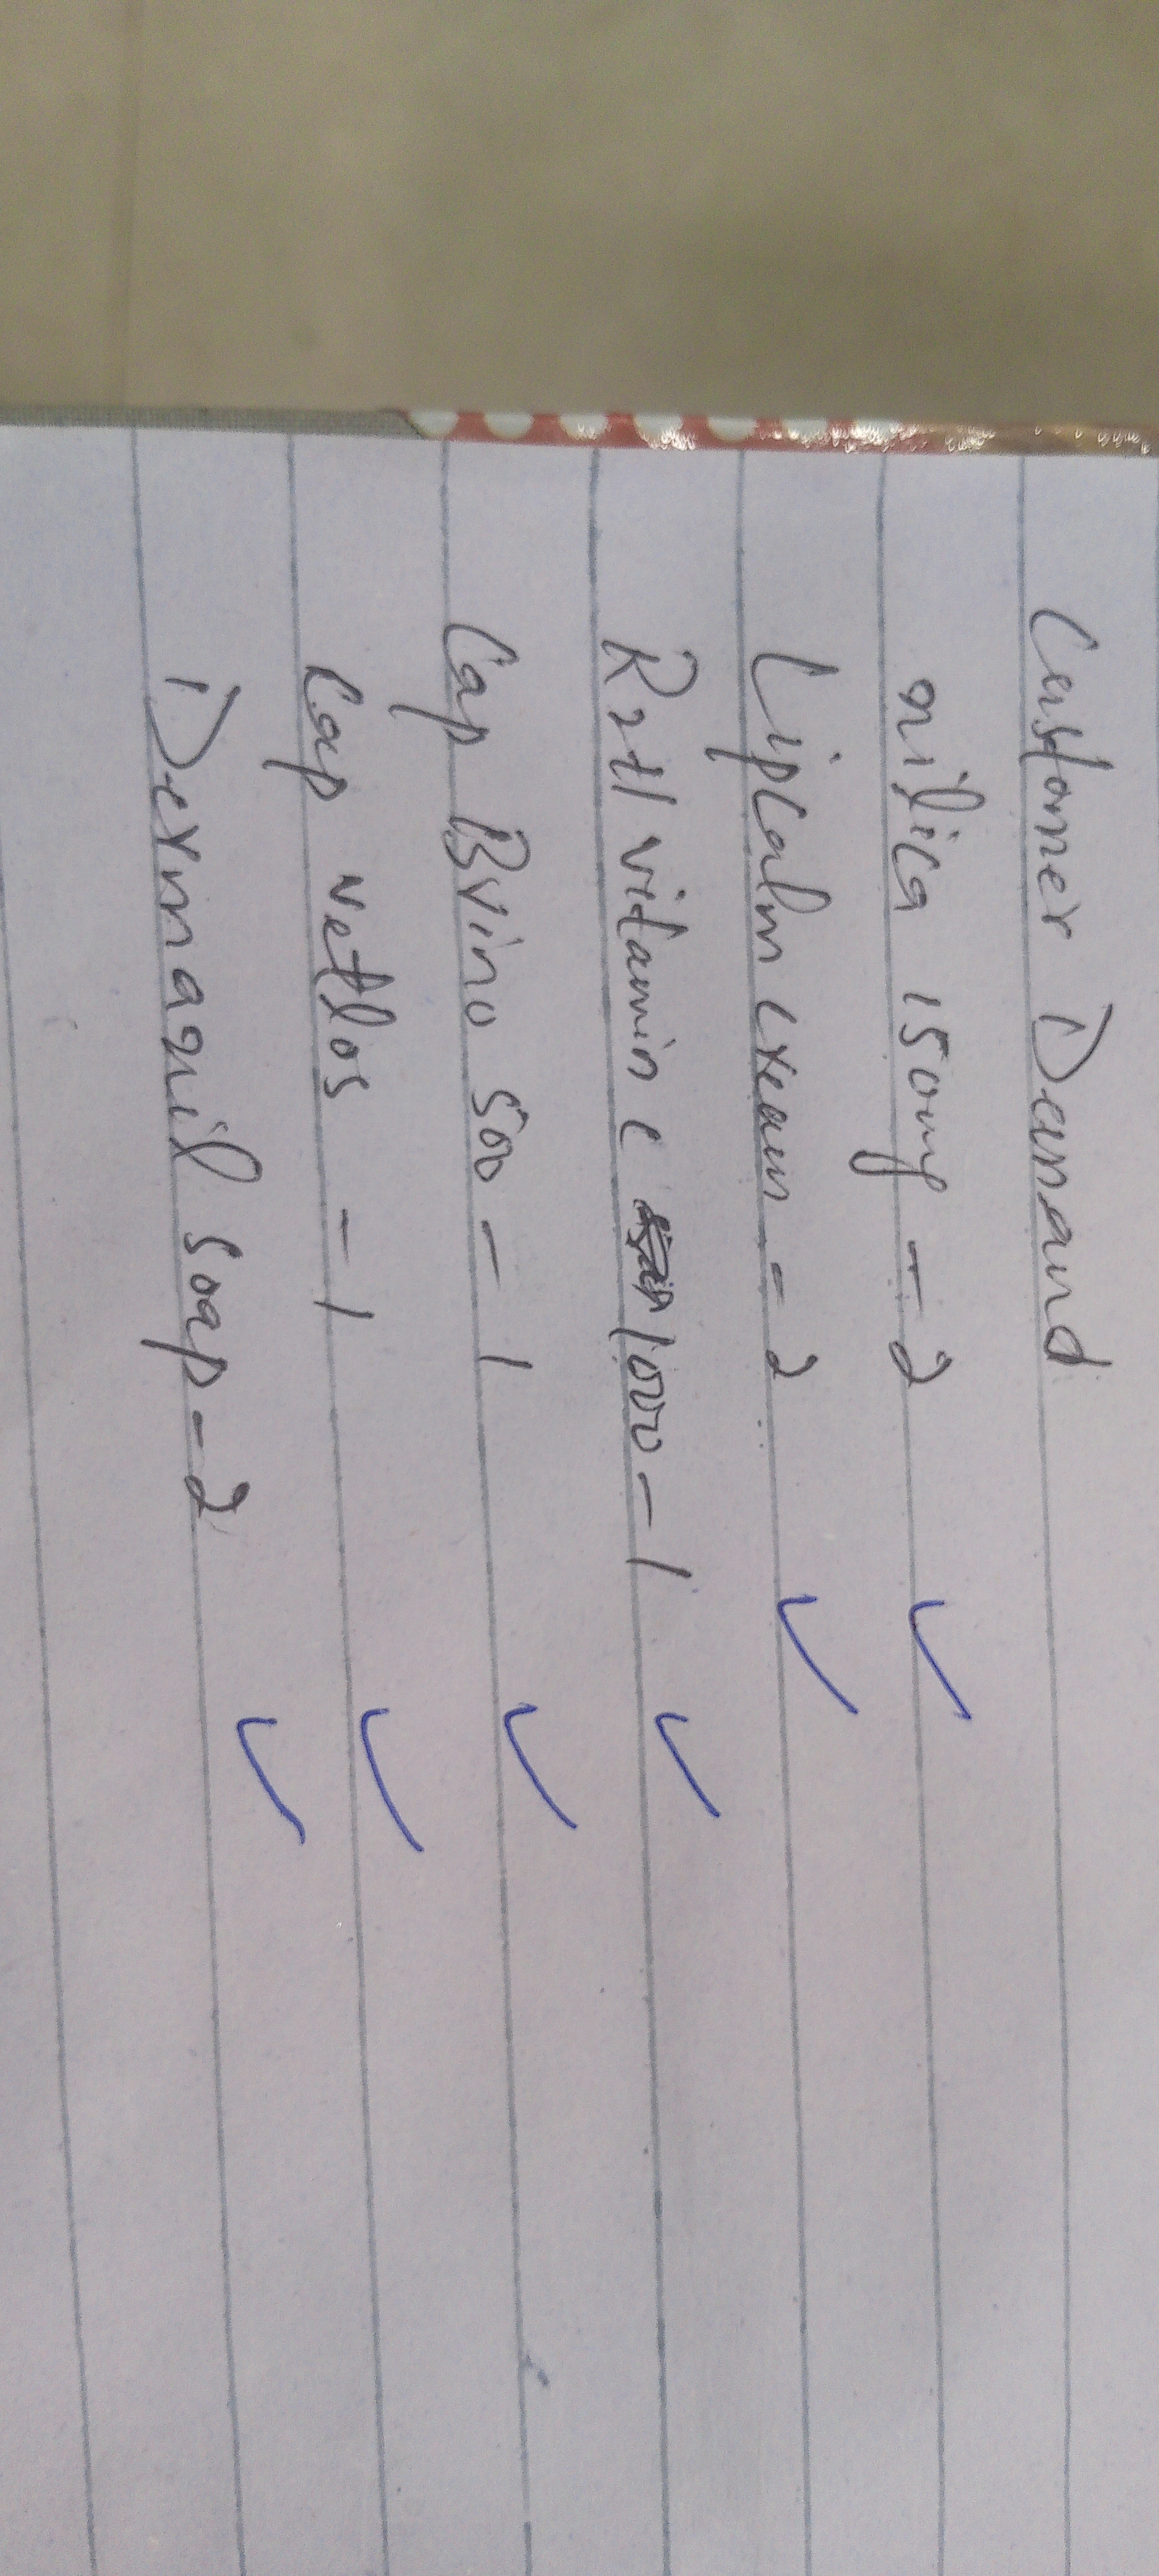 Customer Demand
nilica 150mg - 2
Lipcalm cream = 2
R2H vitamin c 1000 - 1
Cap Bvino 500 - 1
Cap vetlos - 1
Dermaquil soap - 2